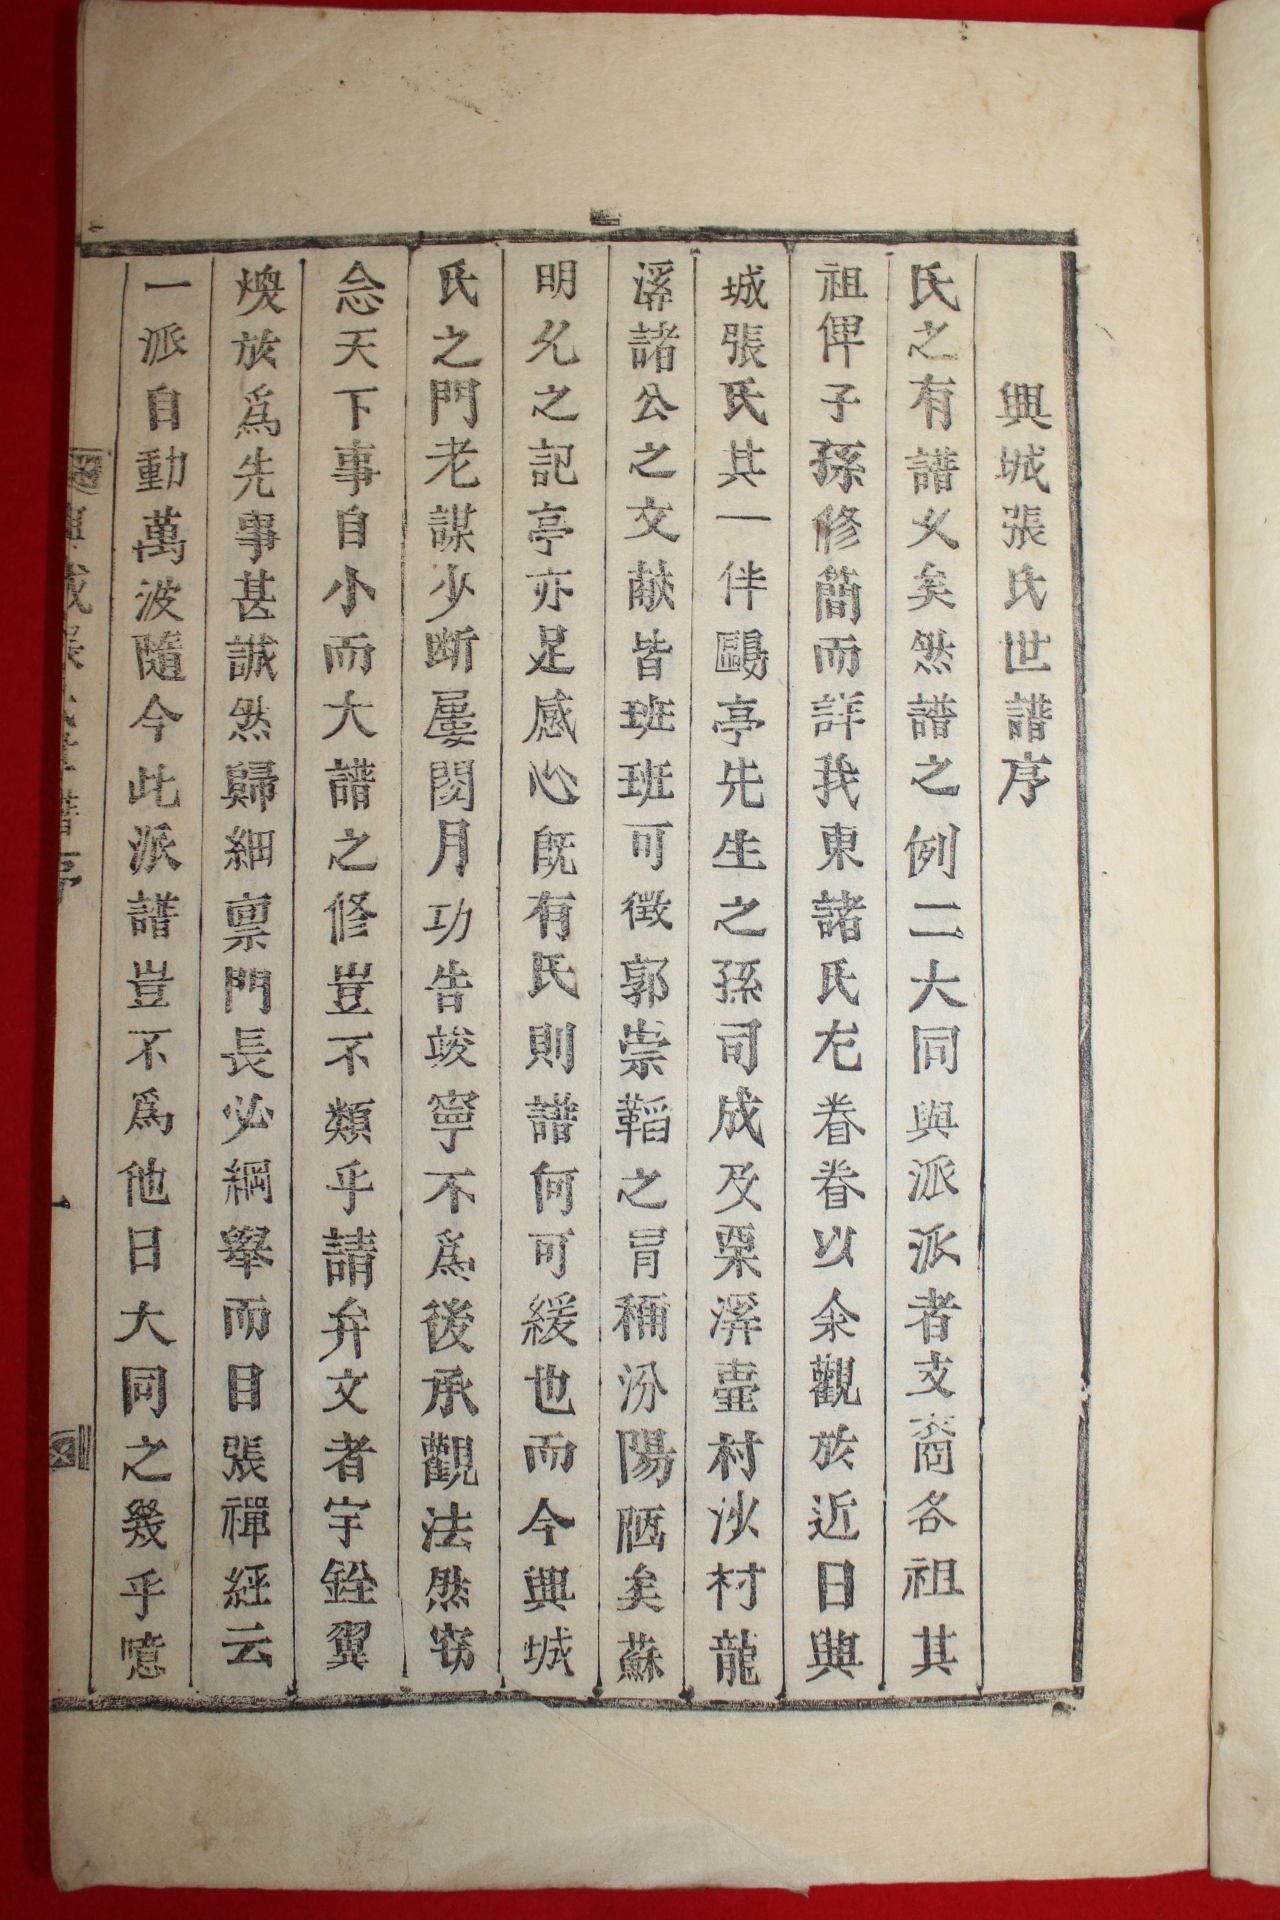 興城張氏世譜序
氏之有譜久矣然譜之例二大同與派派者支裔各祖其
祖俾子孫修簡而詳我東諸氏尤眷眷以余觀於近日興
城張氏其一伴鷗亭先生之孫司成及栗溪臺村沙村龍
溪諸公之文献皆班班可徵郭崇韜之冒稱汾陽陋矣蘇
明允之記亭亦足感心既有氏則譜何可緩也而今興城
氏之門老謀少斷屢閱月功告竣寧不爲後承觀法然窃
念天下事自小而大譜之修豈不類乎請弁文者宇銓翼
煥於爲先事甚誠然歸細稟門長必綱舉而目張禪經云
一派自動萬波隨今此派譜豈不爲他日大同之幾乎噫
興城張氏世譜序
一